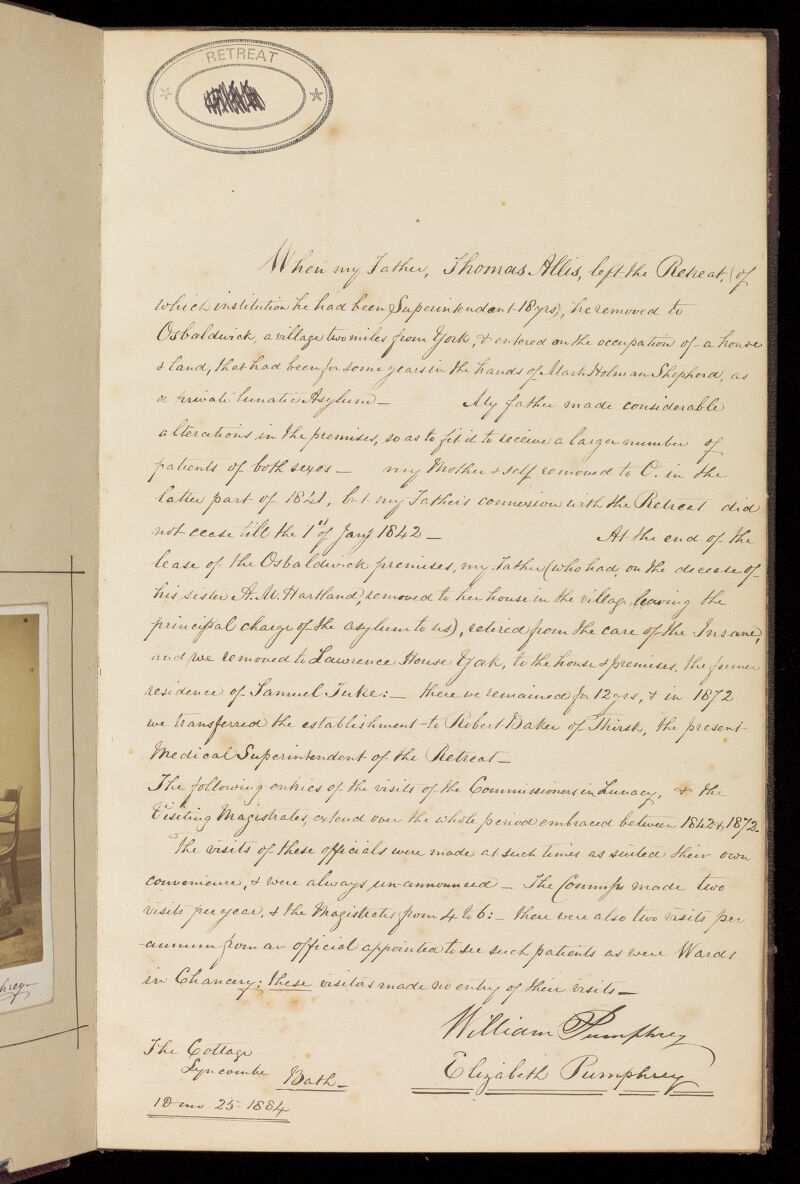 RETREAT
When my Father, Thomas Allis, left the Retreat, (of
which institution he had been Superintendent 18 yrs), he removed to
Osbaldwick, a village two miles from York, & entered on the occupation of a house
& land, that had been for some years in the hands of Mark Holman Shepherd, as
a private lunatic Asylum — My father made considerable
alterations in the premises, so as to fit it to receive a larger number of
patients of both sexes — my Mother & self removed to O. in the
latter part of 1841, but my Father's connexion with the Retreat did
not cease till the 1st of Jany 1842 — At the end of the
lease of the Osbaldwick premises, my Father (who had, on the decease of
his sister A. W. Hartland, removed to her house in the village leaving the
principal charge of the asylum to us), retired from the care of the Insane,
and we removed to Lawrence House York, to the house & premises, the former
residence of Samuel Tuke: — there we remained for 12 yrs, & in 1872
we transferred the establishment to Robert Baker of Thirsk, the present
Medical Superintendent of the Retreat —
The following entries of the visits of the Commissioners in Lunacy, & the
Visiting Magistrates, extend over the whole period embraced between 1842 & 1872.
The visits of these officials were made at such times as suited their own
convenience, & were always un-announced — The Commrs made two
visits per year, & the Magistrates from 4 to 6: — there were also two visits per
annum from an official appointed to see such patients as were Wards
in Chancery; these visitors made no entry of their visits —
William Pumphrey
Elizabeth Pumphrey
The Cottage
Lyncombe Bath —
10 mo 25 - 1884
phrey —